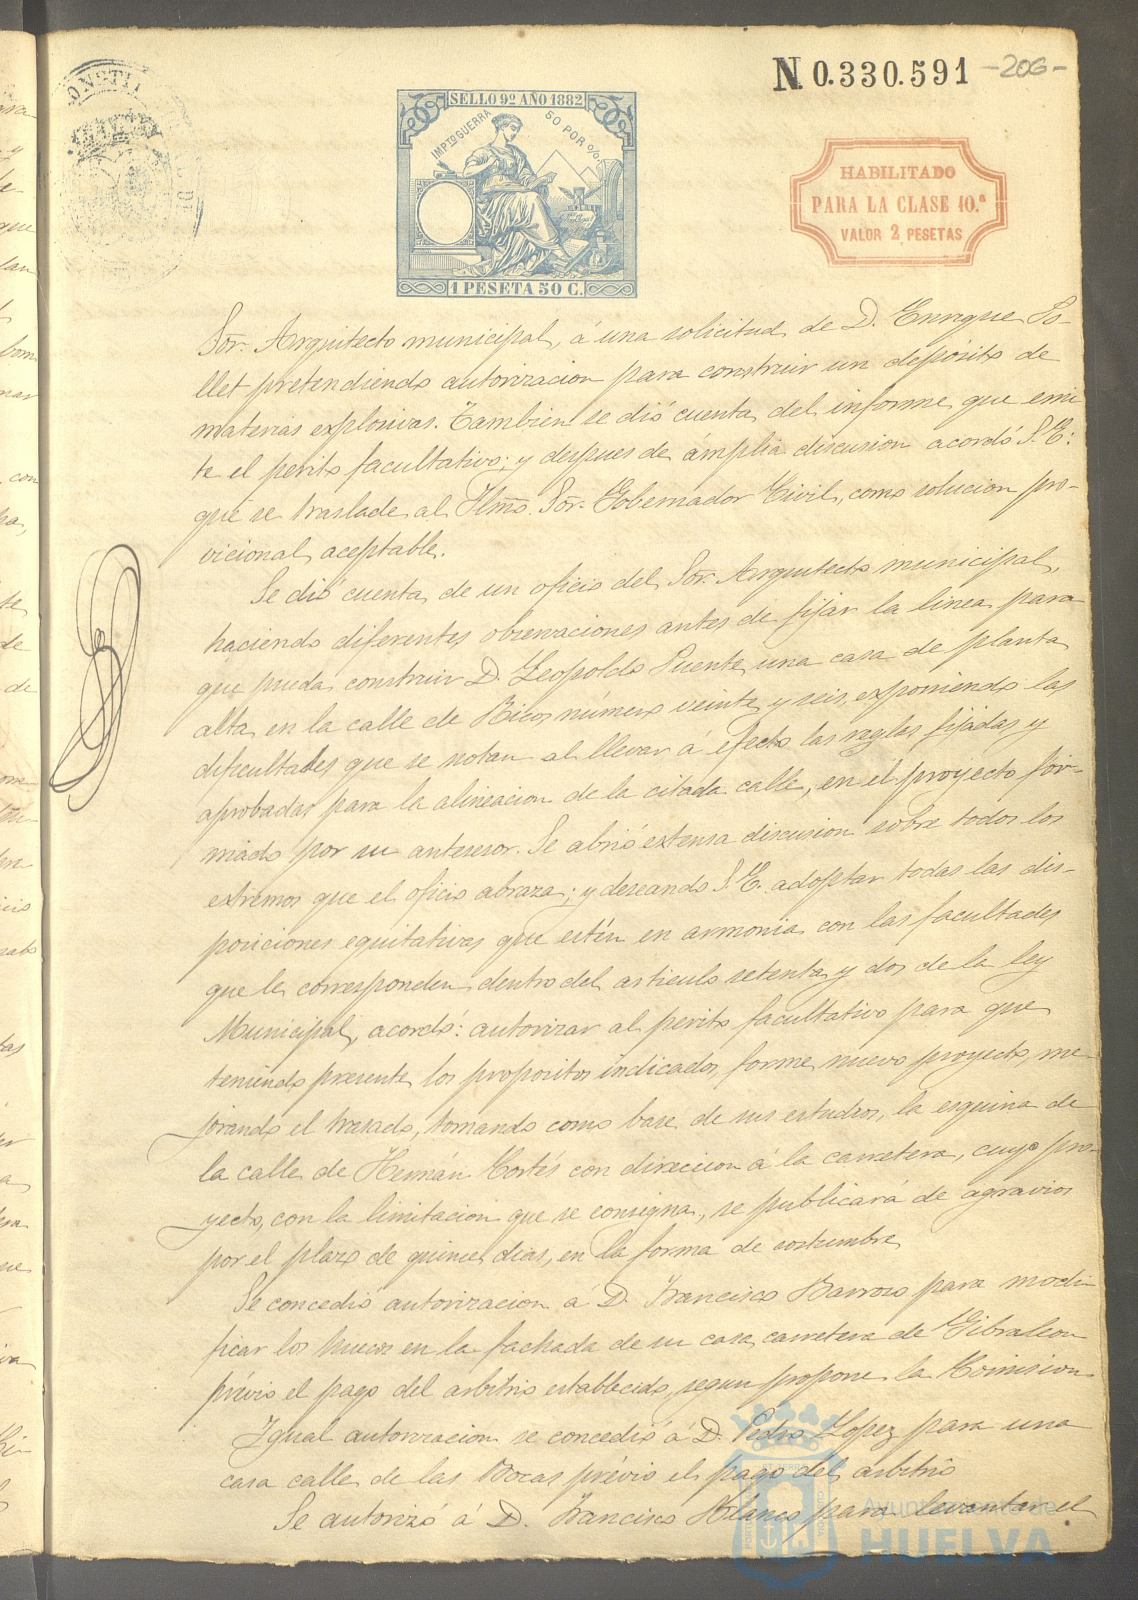 N. 0.330.591 -206-
SELLO 9º AÑO 1882
IMPTO GUERRA 50 POR %
1 PESETA 50 C.
HABILITADO
PARA LA CLASE 10.ª
VALOR 2 PESETAS
Sor. Arquitecto municipal, á una solicitud de D. Enrique So-
llet pretendiendo autorizacion para construir un depósito de
materias explosivas. Tambien se dió cuenta del informe que emi
te el perito facultativo; y despues de ámplia discusion acordó S. E:
que se traslade al Iltmo. Sor. Gobernador Civil, como solucion pro-
vicional aceptable.
Se dió cuenta de un oficio del Sor. Arquitecto municipal,
haciendo diferentes observaciones antes de fijar la linea para
que pueda construir D. Leopoldo Puente una casa de planta
alta en la calle de Ricos número veinte y seis, exponiendo las
dificultades que se notan al llevar á efecto las reglas fijadas y
aprobadas para la alineacion de la citada calle, en el proyecto for-
mado por su antesesor. Se abrió extensa discusion sobre todos los
extremos que el oficio abraza; y deseando S. E. adoptar todas las dis-
posiciones equitativas que estén en armonia con las facultades
que le corresponden dentro del articulo setenta y dos de la ley
Municipal, acordó: autorizar al perito facultativo para que
teniendo presente los propositos indicados, forme nuevo proyecto, me-
jorando el trazado, tomando como base de sus estudios, la esquina de
la calle de Hernán Cortés con direccion á la carretera, cuyo pro-
yecto, con la limitacion que se consigna, se publicará de agravios
por el plazo de quince dias, en la forma de costumbre
Se concedió autorizacion á D. Francisco Barroso para modi-
ficar los huecos en la fachada de su casa carretera de Gibraleon
prévio el pago del arbitrio establecido, segun propone la Comision
Igual autorizacion se concedió á D. Pedro Lopez para una
casa calle de las Bocas prévio el pago del arbitrio
Se autorizó á D. Francisco Blanco para levantar el
Ayuntamiento de
HUELVA